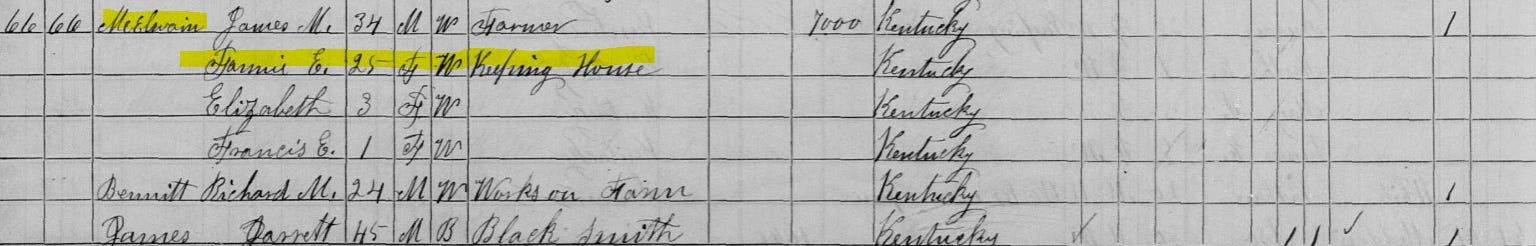 66 66 McElwain James M. 34 M W Farmer 7000 Kentucky 1
Fannie E. 25 F W Keeping House Kentucky
Elizabeth 3 F W Kentucky
Francis E. 1 F W Kentucky
Bennitt Richard M. 24 M W Works on Farm Kentucky 1
James Garrett 45 M B Black Smith Kentucky / 1 1 / 1